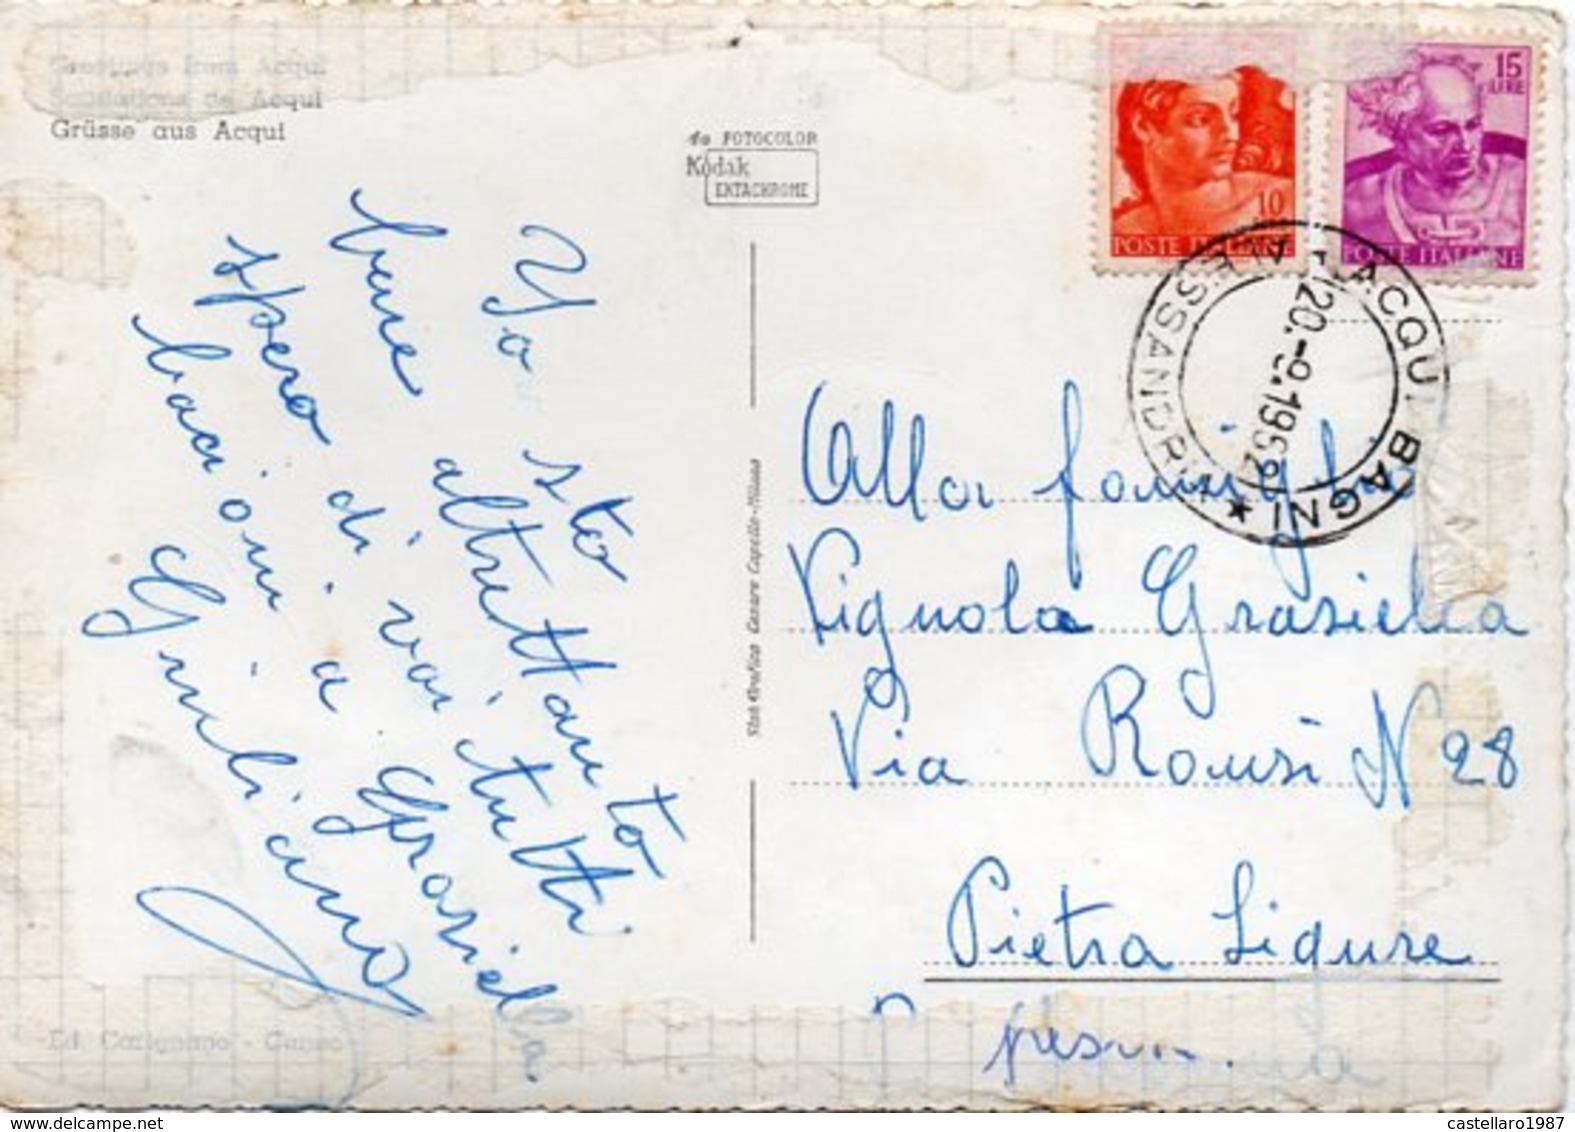 Greetings from Acqui
Salutations de Acqui
Grüsse aus Acqui
da FOTOCOLOR
Kodak
EKTACHROME
10
POSTE ITALIANE
15
LIRE
POSTE ITALIANE
ACQUI BAGNI * ALESSANDRIA
20.-9.1962
Yo sto
bene altrettanto
spero di voi tutti
bacioni a Grasiella
Giuliano
Alla famiglia
Vignola Grasiella
Via Rousi N 28
Pietra Ligure
Stab Grafico Cesare Capello-Milano
Ed. Carignano - Cuneo
castellaro1987